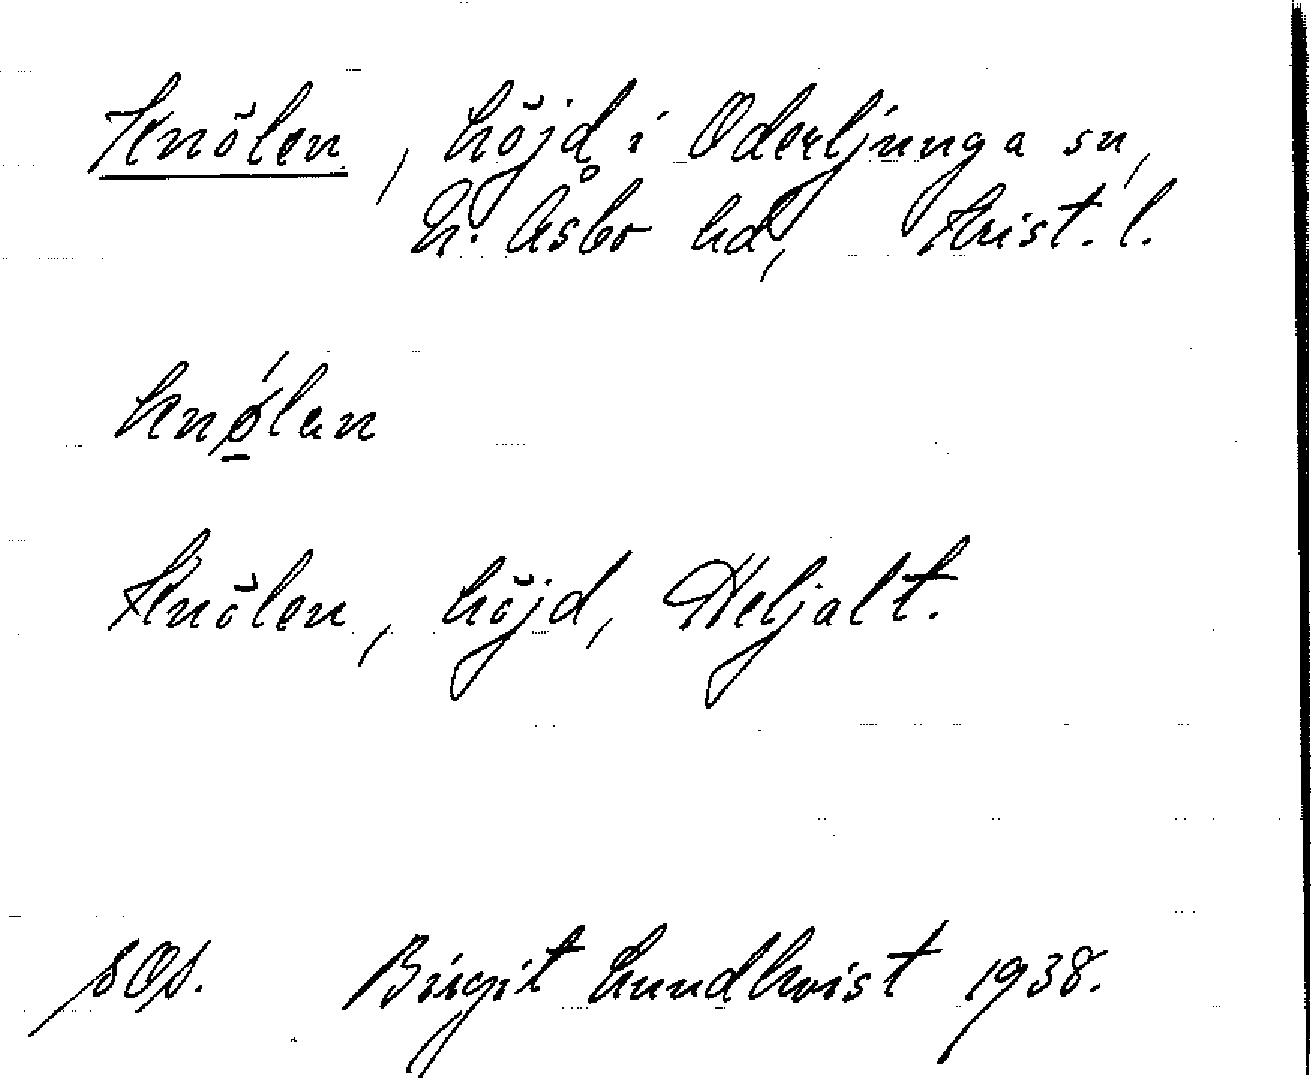 Knölen, höjd i Oderljunga sn,
N. Åsbo hd, Krist. l.
knǿ̱lan
Knölen, höjd, Heljalt.
Birgit Lundkvist 1938.